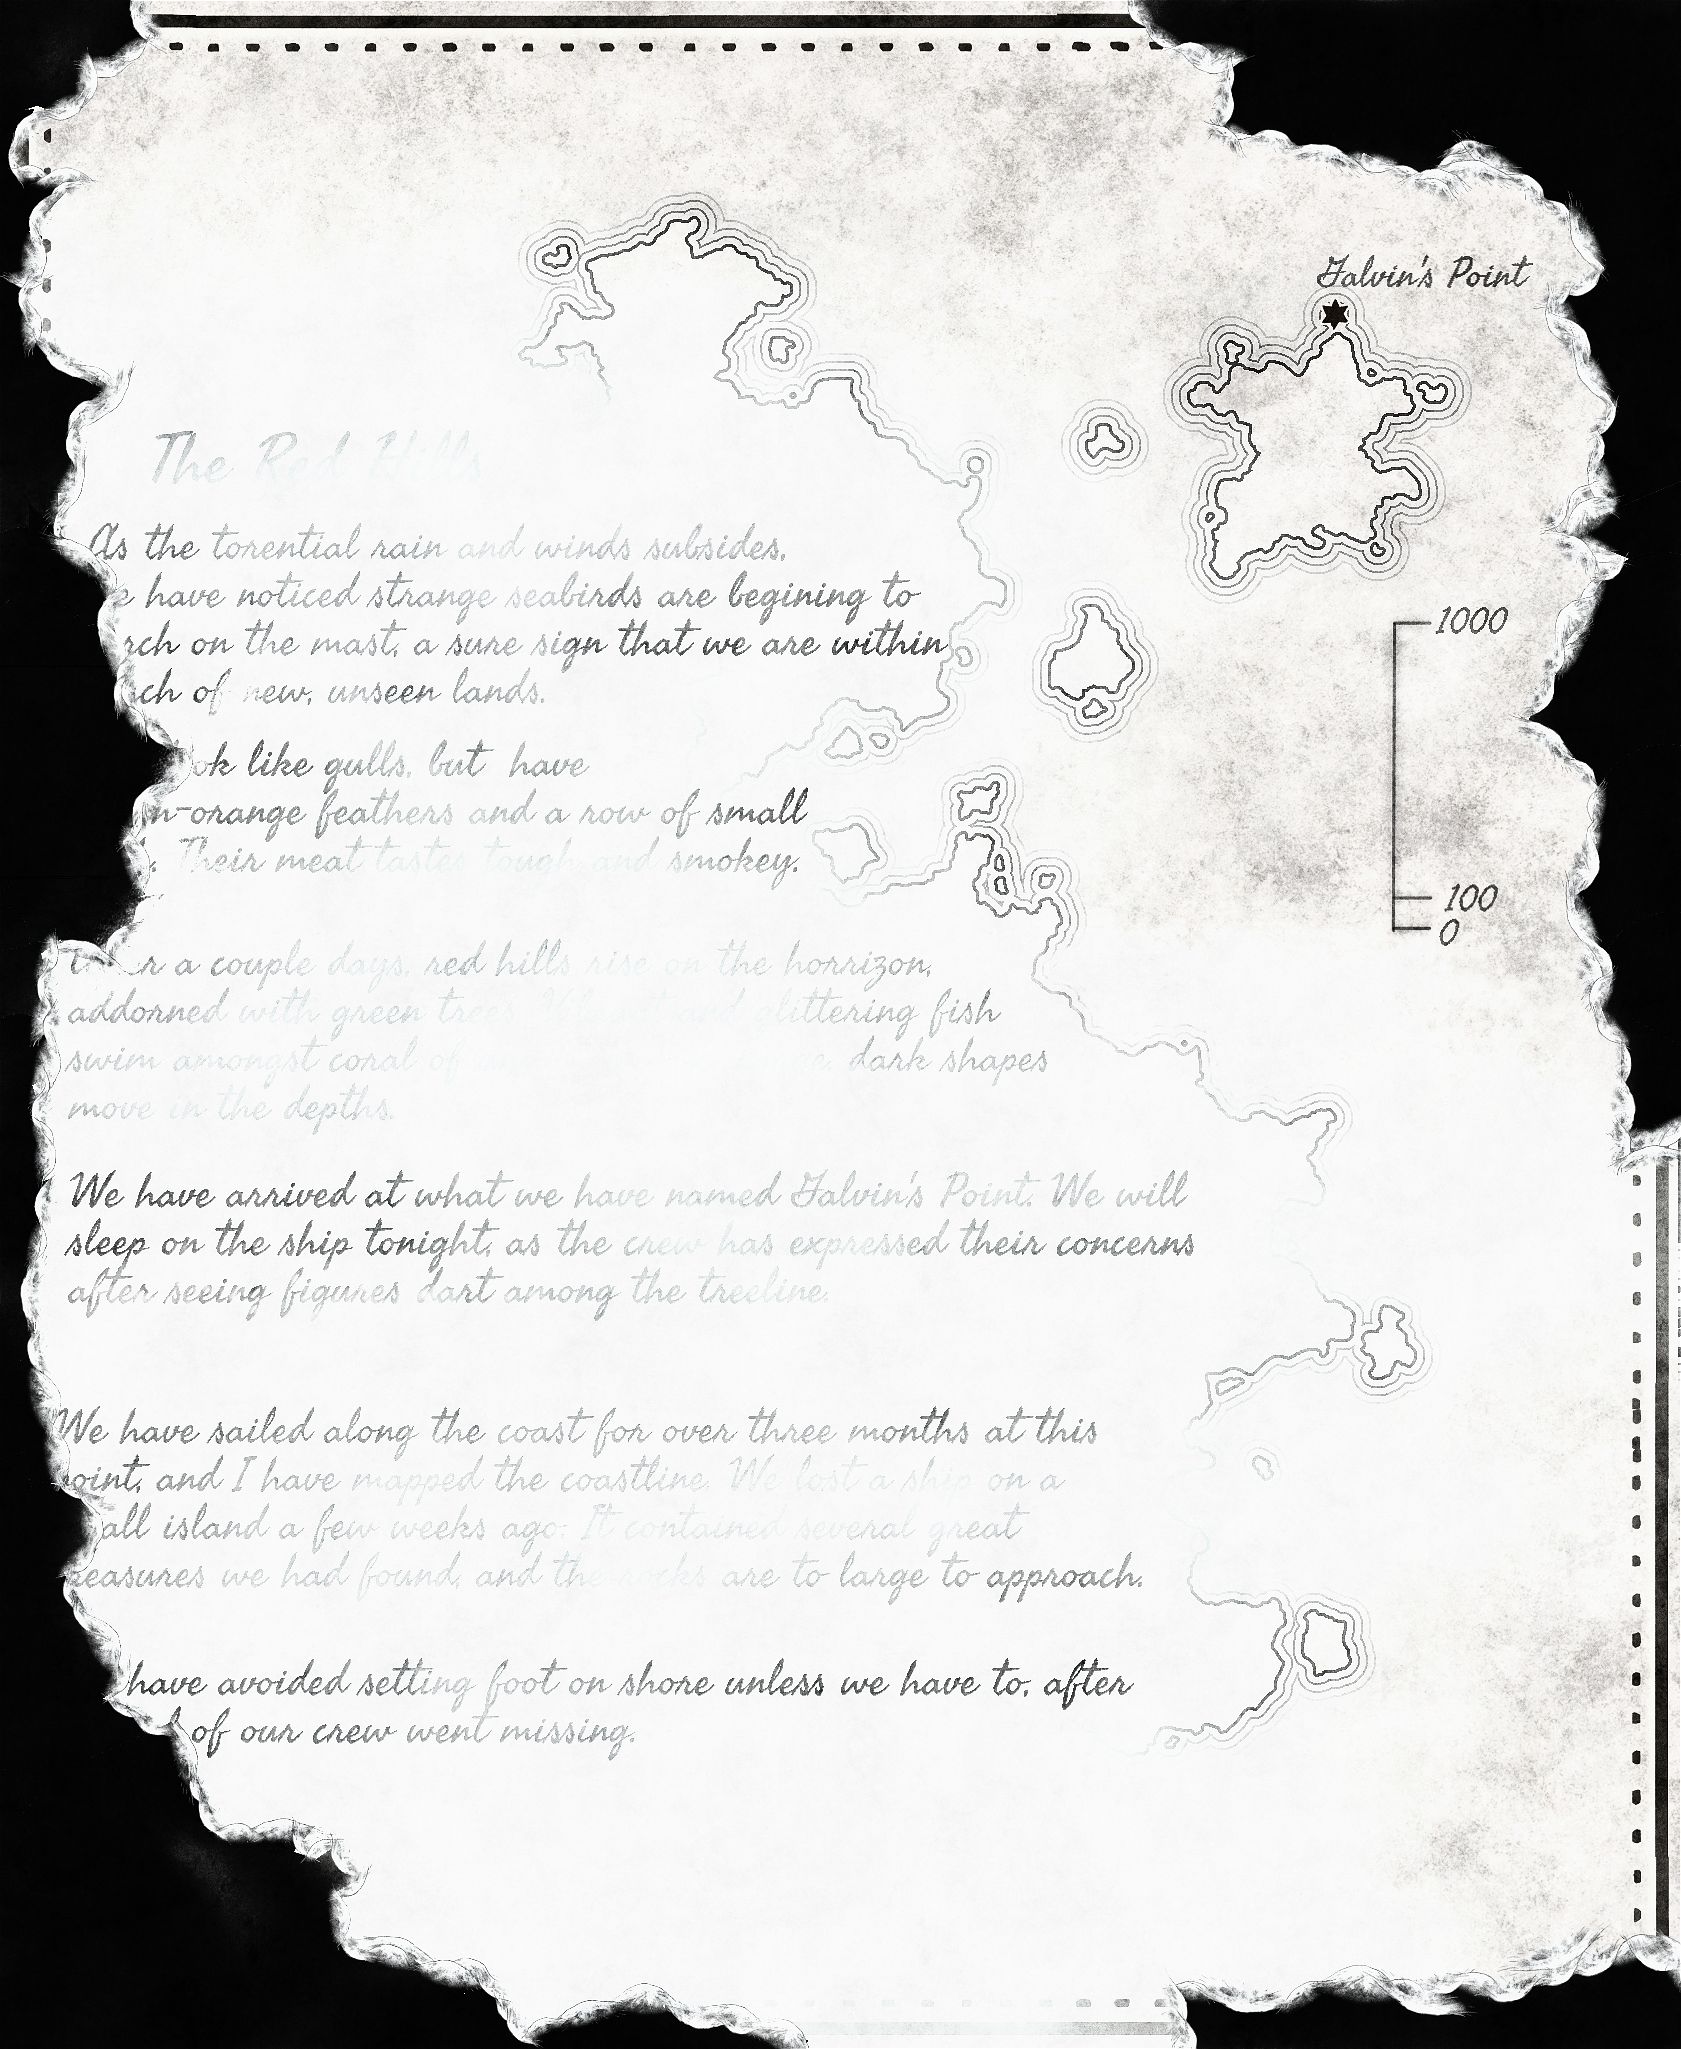 Galvin's Point
The Red Hills
As the torential rain and winds subsides,
have noticed strange seabirds are begining to
rch on the mast, a sure sign that we are within
ch of new, unseen lands.
ok like gulls, but have
n-orange feathers and a row of small
Their meat tastes tough and smokey.
r a couple days, red hills rise on the horrizon,
addorned with green and glittering fish
swim amongst coral of dark shapes
move in the depths.
We have arrived at what we have named Galvin's Point. We will
sleep on the ship tonight, as the crew has expressed their concerns
after seeing figures dart among the treeline.
We have sailed along the coast for over three months at this
point, and I have mapped the coastline. We lost a ship on a
all island a few weeks ago: It contained several great
easures we had found, and the rocks are to large to approach.
have avoided setting foot on shore unless we have to, after
of our crew went missing.
1000
100
0